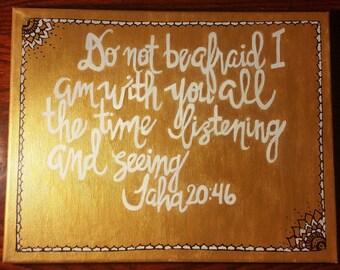 Do not be afraid I
am with you all
the time listening
and seeing
Taha 20:46